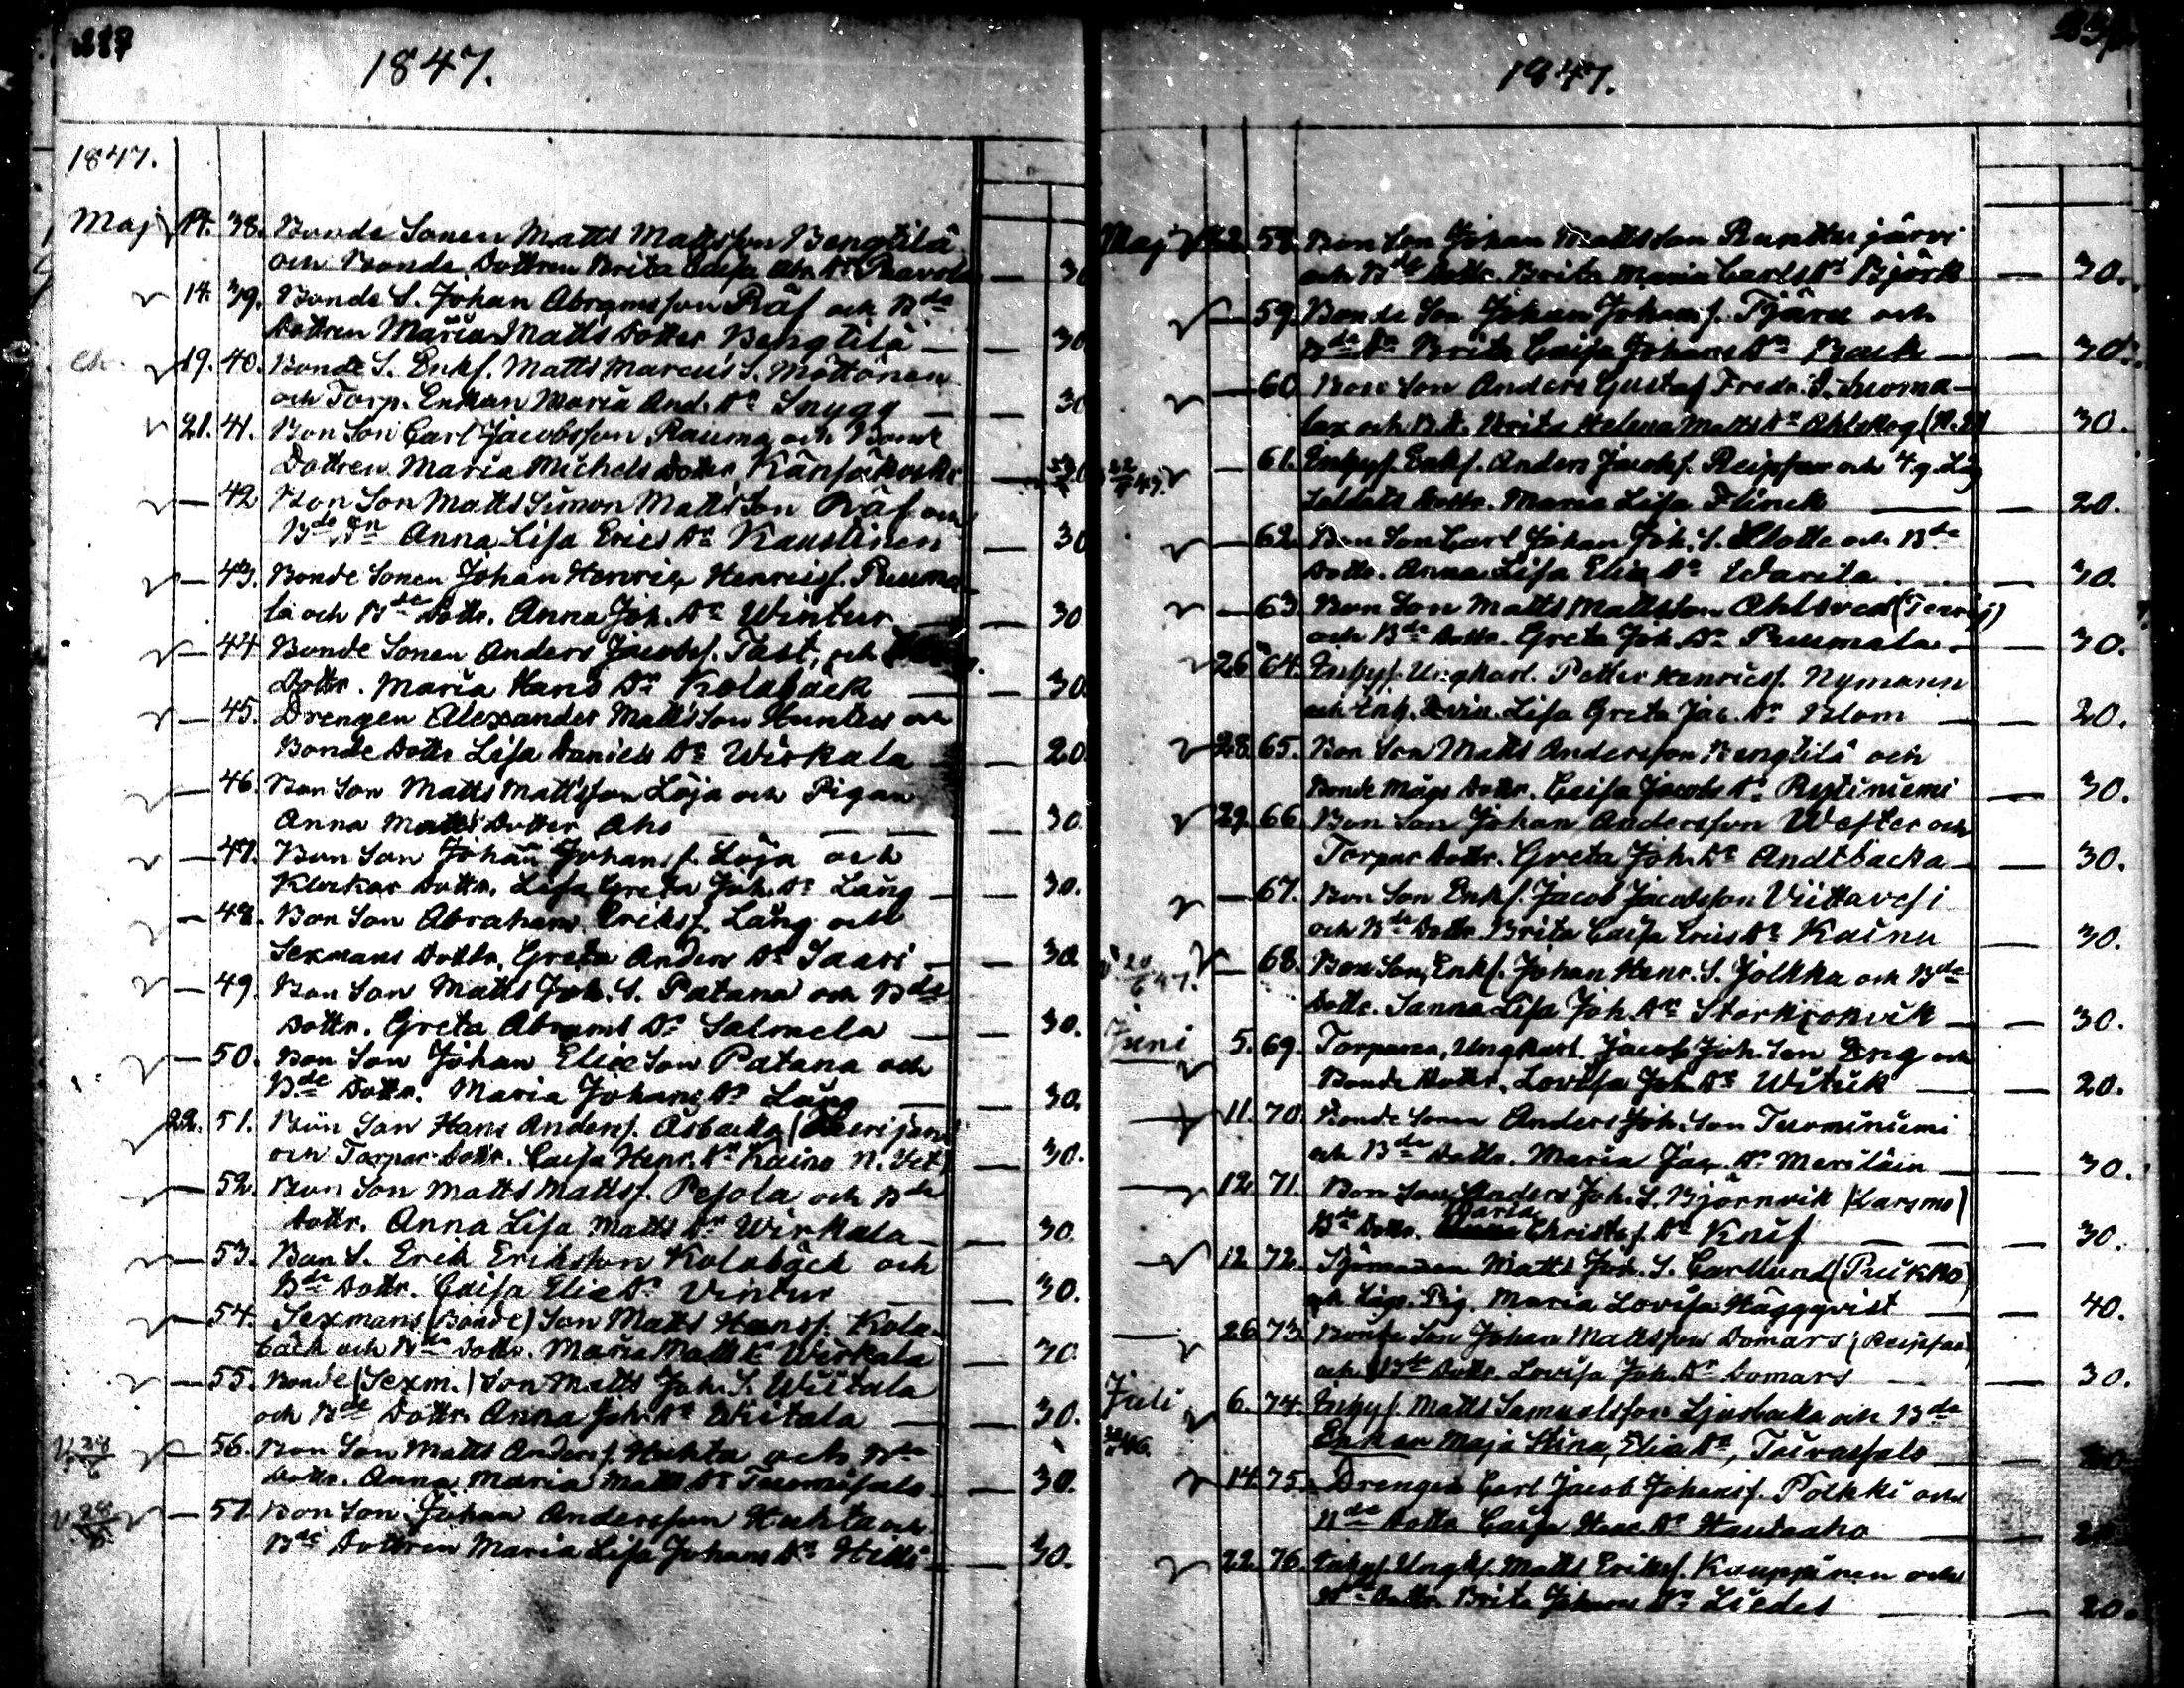 287
1847.
1847.
Maj 14. 38. Bonde Sonen Matts Mattsson Bengtilä
och Bonde Dottren Brita Caisa Abr. Dr Paavola — 30
14. 39. Bonde S. Johan Abramsson Räf och Bde
Dottren Maria Matts Dotter Bengtilä — 30
19. 40. Bonde S. Enkl. Matts Marcus S. Möttönen
och Torp. Enkan Maria And. Dr Snygg — 30
21. 41. Bon Son Carl Jacobsson Rauma och Bonde
Dottren Maria Michels Dottr — 30
— 42 Bon Son Matts Simon Mattsson Räf och
Bde Dn Anna Lisa Erics Dr Kaustinen — 30
— 43. Bonde Sonen Johan Henric Henricss. Puuma-
la och Bde Dottr. Anna Joh. Dr Wintur — 30
— 44 Bonde Sonen Anders Jacobss. Tast, och
Dottr. Maria Hans Dr Kolabäck — 30
— 45. Drengen Alexander Mattsson Huntus och
Bonde Dottr Lisa Daniels Dr Wirkala — 20
— 46. Bon Son Matts Mattsson Löja och Pigan
Anna Matts Dotter Aho — 30.
— 47. Bon Son Johan Johanss. Löja och
Klockar Dottr. Lisa Greta Joh. Dr Lång — 30.
— 48. Bon Son Abraham Erikss. Lång och
Sexmans Dottr. Greta Anders Dr Saari — 30.
— 49. Bon Son Matts Joh. S. Patana och Bde
Dottr. Greta Abrams Dr Salmela — 30.
— 50. Bon Son Johan Eliæson Patana och
Bde Dottr. Maria Johans Dr Lång — 30.
22. 51. Bon Son Hans Anderss. Åsbacka (Terijärvi
och Torpar Dottr. Caisa Henr. Dr Kaino N. Vet.) — 30.
— 52. Bon Son Matts Mattss. Pesola och Bde
Dottr. Anna Lisa Matts Dr Wirkala — 30.
— 53. Bon S. Erik Eriksson Kolabäck och
Bde Dottr. Caisa Eliæ Dr Vintur — 30.
— 54. Sexmans (Bonde) Son Matts Hanss. Kola-
bäck och Bde Dottr. Maria Matts Dr Wirkala — 30.
— 55. Bonde (Sexm.) Son Matts Joh. S. Wiitala
och Bde Dottr. Anna Joh. Dr Wiitala — 30.
— 56. Bon Son Matts Anderss. Huhta och Bde
Dottr. Anna Maria Matts Dr Tuomisalo — 30.
— 57. Bon Son Johan Andersson Huhta och
Bde Dottren Maria Lisa Johans Dr Hilli — 30.
1847.
Maj 22. 58. Bon Son Johan Mattsson Runttujärvi
och Bde Dottr. Brita Maria Carls Dr Björk — 30.
— 59. Bonde Son Johan Johanss. Tjäru och
Bde Dn Brita Caisa Johans Dr Back — 30.
— 60 Bon Son Anders Gustaf Fredr. S. Suoma-
lax och Bde Brita Helena Matts Dr Ahlskog — 30.
61. Inhys. Enkl. Anders Jacobs. Reipsar och
Soldats Dottr. Maria Lisa Flinck — 20.
— 62. Bon Son Carl Johan Joh. S. Slotte och Bde
Dottr. Anna Lisa Eliæ Dr Warila — 30.
— 63 Bon Son Matts Mattsson Ahlsved (Terrij)
och Bde Dottr. Greta Joh. Dr Puumala — 30.
26 64. Inhys. Ungkarl. Petter Henricss. Nymann
och Inh. Lisa Greta Jac. Dr Blom — 20.
28. 65. Bon Son Matts Andersson Bengtilä och
Bonde Mågs Dottr. Caisa Jacobs Dr Rytiniemi — 30.
29. 66 Bon Son Johan Andersson Wester och
Torpar Dottr. Greta Joh. Dr Andtbacka — 30.
— 67. Bon Son Enkl. Jacob Jacobsson Viitavesi
och Bde Dottr. Brita Caisa Erics Dr Kainu — 30.
— 68. Bon Son, Enkl. Johan Henr. S. Jolkka och Bde
Dottr. Sanna Lisa Joh. Dr Storkrokvik — 30.
Juni 5. 69. Torparen, Ungkarl. Jacob Joh. Son Eng och
Bonde Dottr. Lovisa Joh. Dr Witick — 20.
11. 70. Bonde Sonen Anders Joh. Son Tuominiemi
och Bde Dottr. Maria Jac. Dr Meriläin — 30.
12. 71. Bon Son Anders Joh. S. Björnvik (Larsmo)
Bde Dottr. Maria Christof. Dr Knif — 30.
12. 72. Sjömannen Matts Joh. S. Carllund (Puckko)
och Pig. Maria Lovisa Häggqvist — 40.
26. 73. Bonde Son Johan Mattsson Domars (Reipsar)
och Bde Dottr. Lovisa Joh. Dr Domars — 30.
Juli 6. 74. Inhys. Matts Samuelsson Ljusbacka och Bde
Enkan Maja Stina Eliæ Dr, Taivassalo
14. 75. Drengen Carl Jacob Johanss. Pölkki och
Bde Dottr Caisa Isac Dr Hautaaho
22. 76. Inhys. Ungk. Matts Erikss. Kauppinen och
Bde Dottr. Brita Johans Dr Liedes — 20.